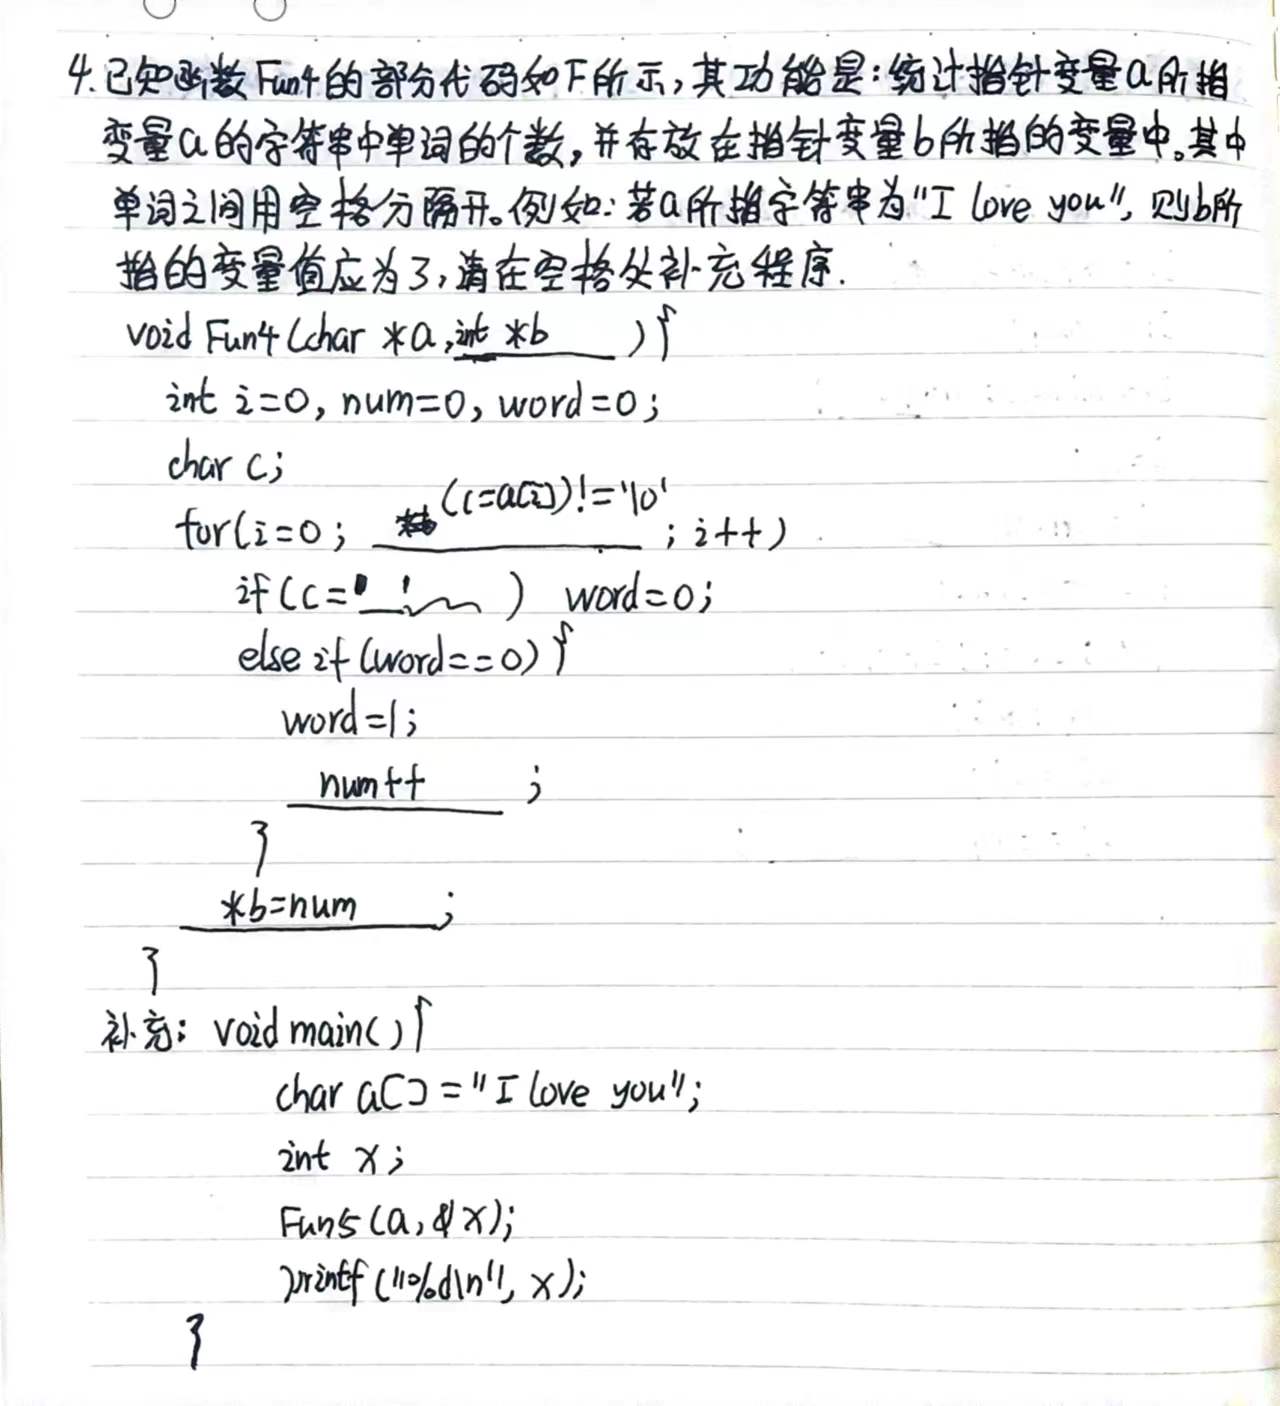 4.已知函数Fun4的部分代码如下所示,其功能是:统计指针变量a所指
变量a的字符串中单词的个数,并存放在指针变量b所指的变量中。其中
单词之间用空格分隔开。例如:若a所指字符串为"I love you",则b所
指的变量值应为3,请在空格处补充程序.
void Fun4(char *a,int *b ){
int i=0, num=0, word=0;
char c;
for(i=0; (c=a[i])!='\0' ; i++)
if(c=' ') word=0;
else if(word==0){
word=1;
num++ ;
}
*b=num ;
}
补充: void main(){
char a[]="I love you";
int x;
Fun5(a,&x);
printf("%d\n", x);
}